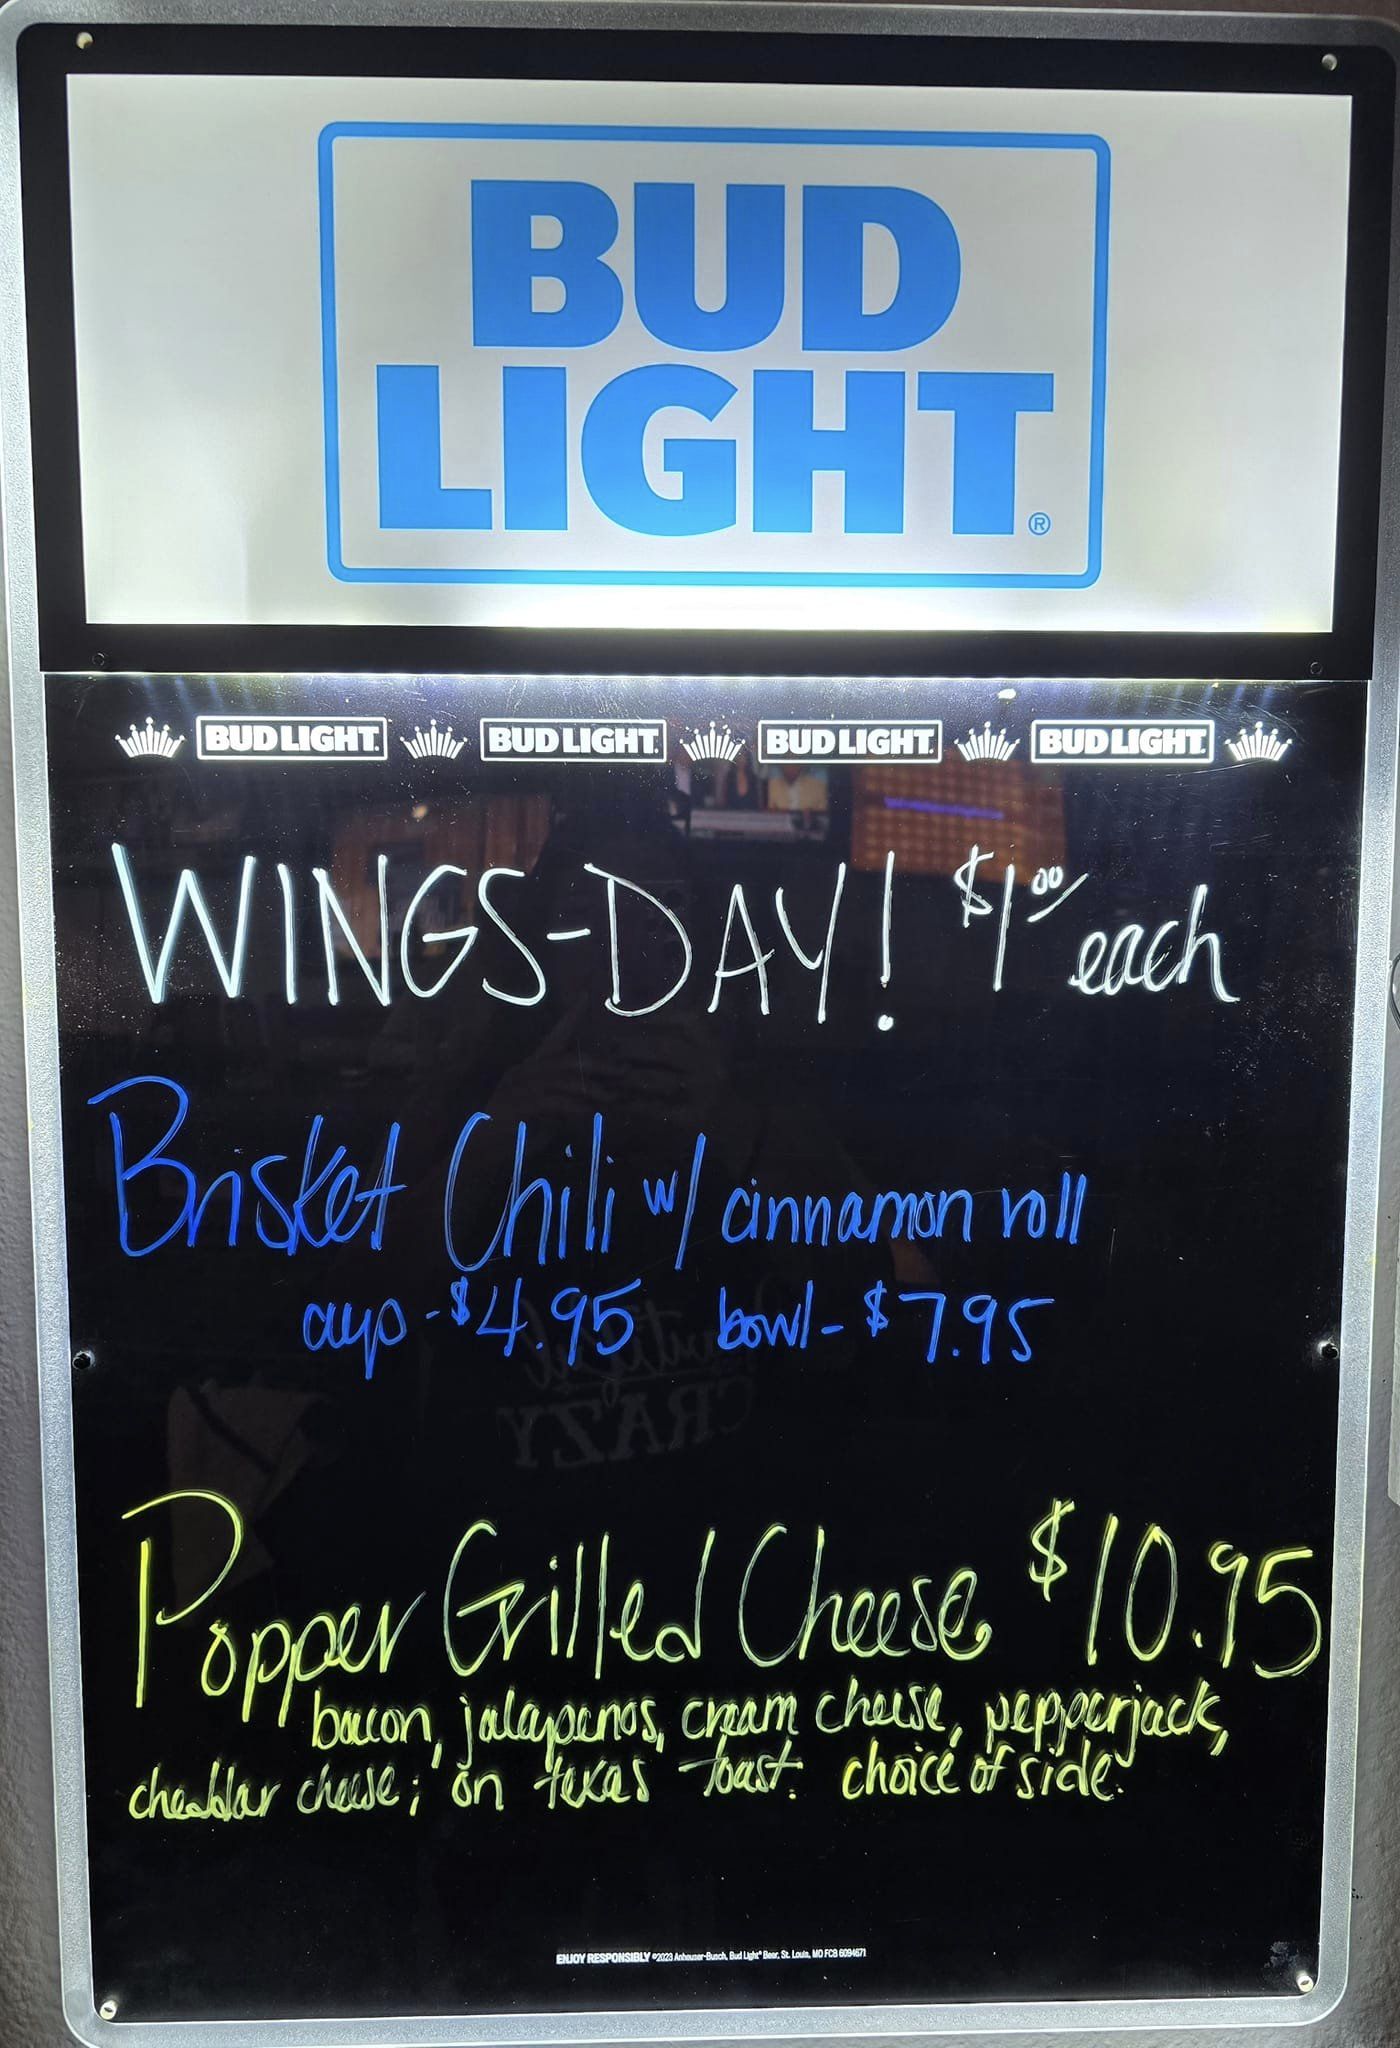 BUD
LIGHT®
BUD LIGHT. BUD LIGHT. BUD LIGHT. BUD LIGHT.
WINGS-DAY! $1.00 each
Brisket Chili w/ cinnamon roll
cup - $4.95 bowl - $7.95
CRAZY
Popper Grilled Cheese $10.95
bacon, jalapenos, cream cheese, pepperjack,
cheddar cheese; on texas toast. choice of side.
ENJOY RESPONSIBLY ©2023 Anheuser-Busch, Bud Light® Beer, St. Louis, MO FCB 6094671